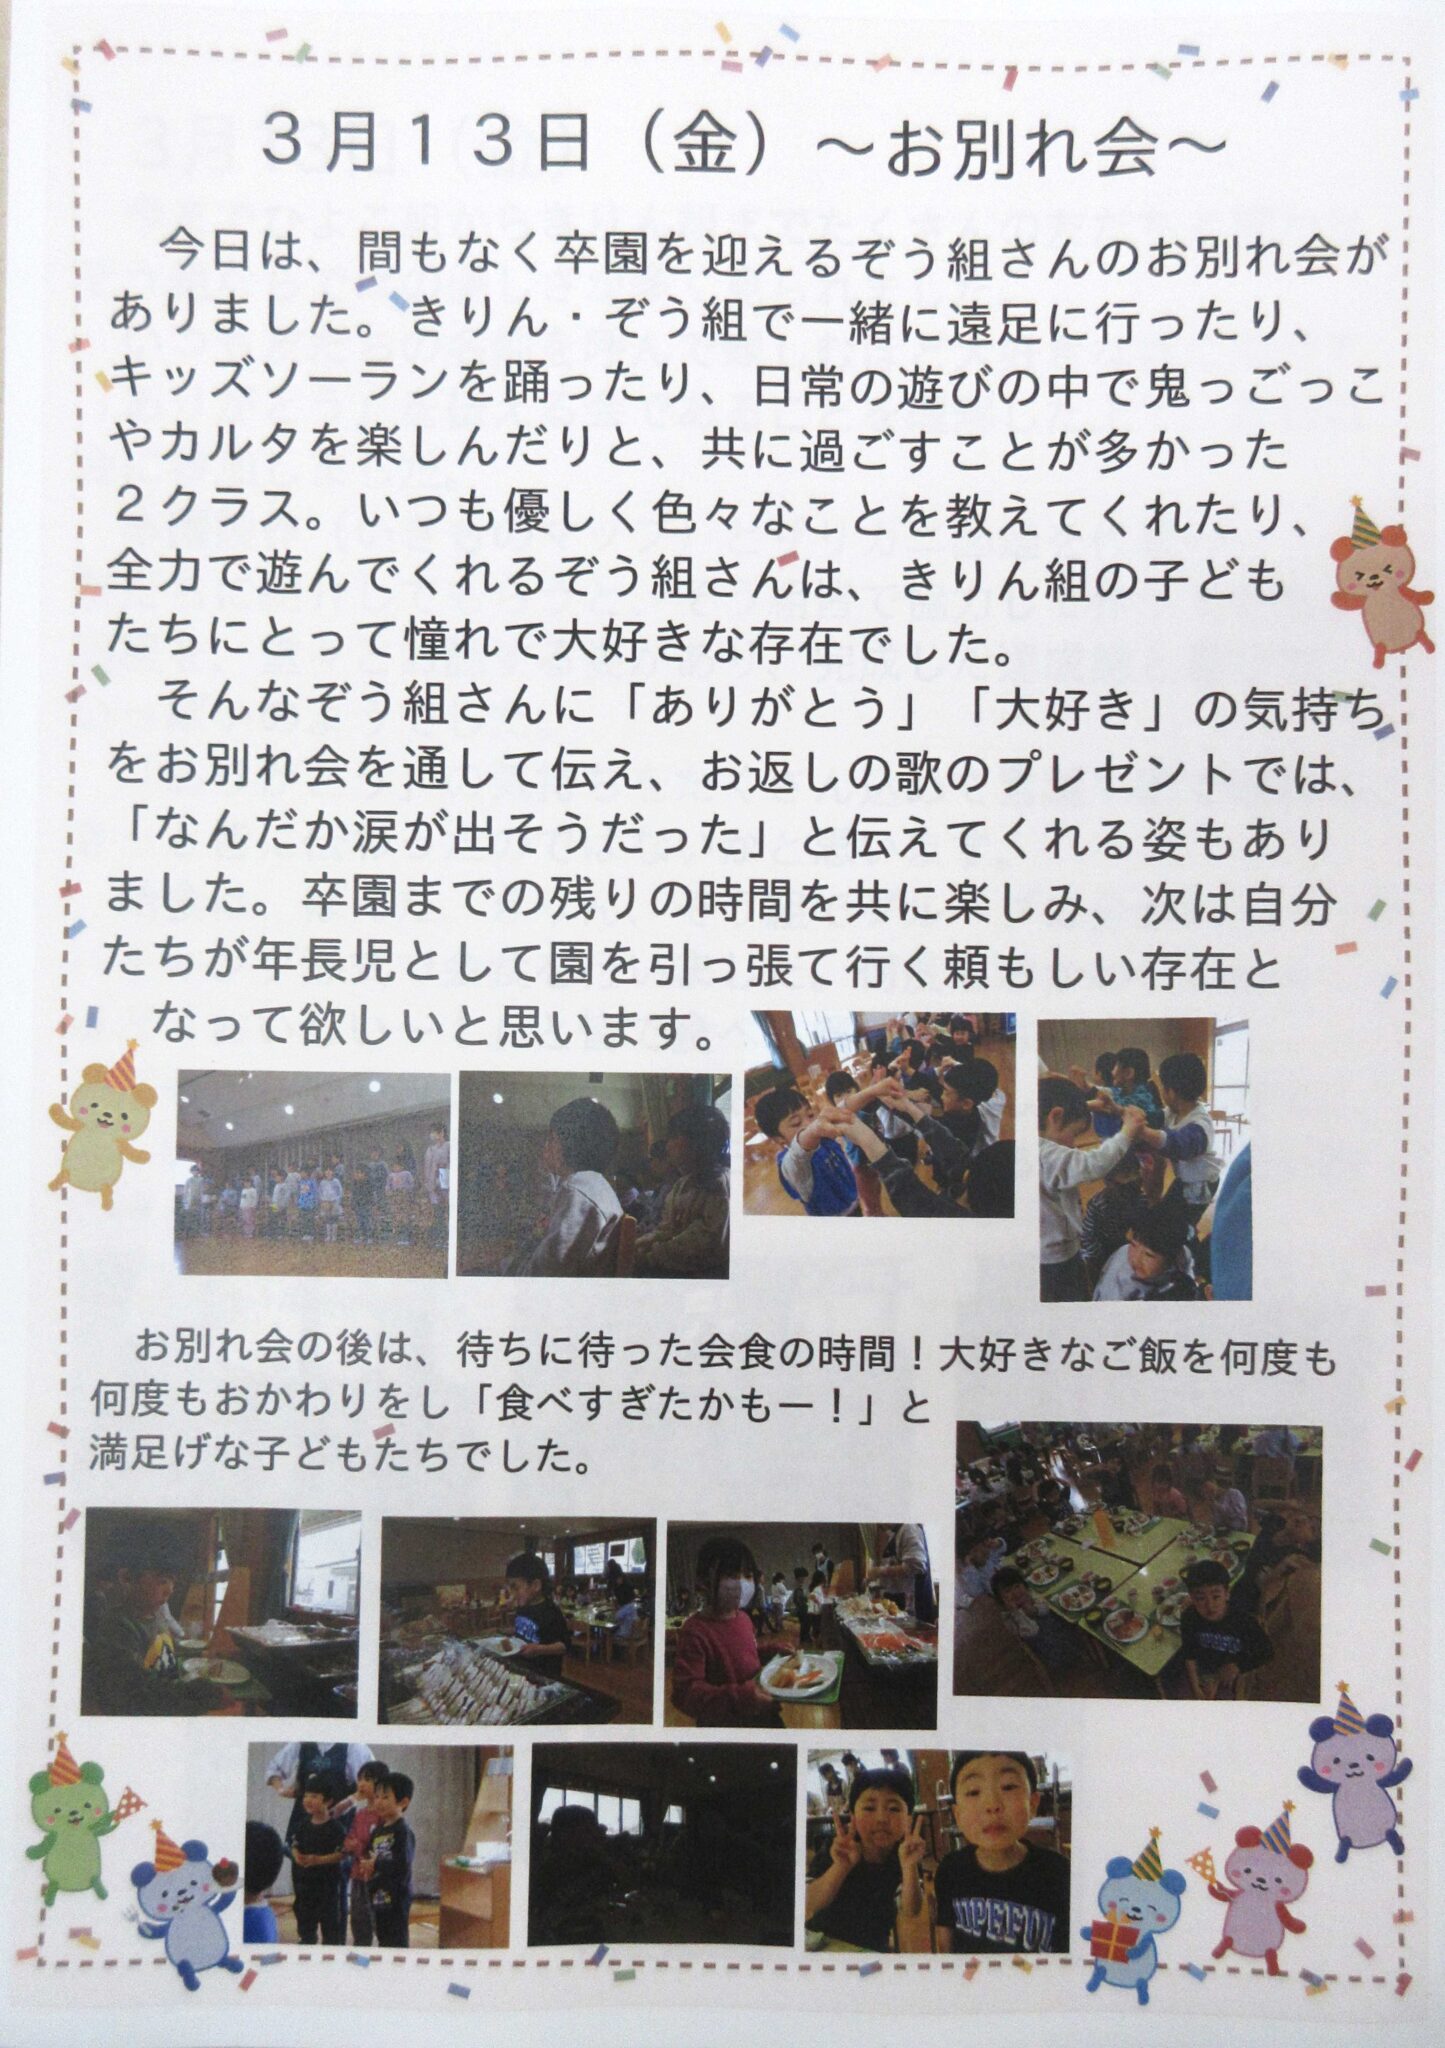 ３月１３日（金）～お別れ会～
今日は、間もなく卒園を迎えるぞう組さんのお別れ会が
ありました。きりん・ぞう組で一緒に遠足に行ったり、
キッズソーランを踊ったり、日常の遊びの中で鬼っごっこ
やカルタを楽しんだりと、共に過ごすことが多かった
２クラス。いつも優しく色々なことを教えてくれたり、
全力で遊んでくれるぞう組さんは、きりん組の子ども
たちにとって憧れで大好きな存在でした。
そんなぞう組さんに「ありがとう」「大好き」の気持ち
をお別れ会を通して伝え、お返しの歌のプレゼントでは、
「なんだか涙が出そうだった」と伝えてくれる姿もあり
ました。卒園までの残りの時間を共に楽しみ、次は自分
たちが年長児として園を引っ張て行く頼もしい存在と
なって欲しいと思います。
お別れ会の後は、待ちに待った会食の時間！大好きなご飯を何度も
何度もおかわりをし「食べすぎたかもー！」と
満足げな子どもたちでした。